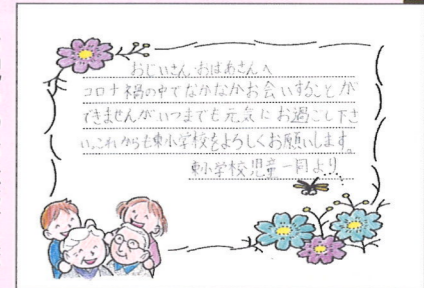 おじいさん・おばあさんへ
コロナ禍の中でなかなかお会いすることが
できませんが、いつまでも元気にお過ごし下さ
い。これからも東小学校をよろしくお願いします。
東小学校児童一同より